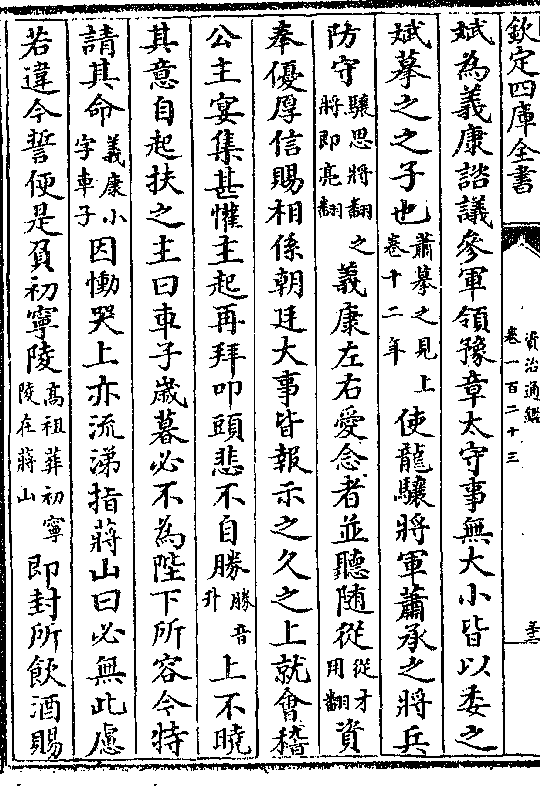 欽定四庫全書
資治通鑑
卷一百二十三
斌為義康諮議參軍領豫章太守事無大小皆以委之
斌摹之之子也蕭摹之見上卷十二年使龍驤將軍蕭承之將兵
防守驤思將翻將即亮翻之義康左右愛念者並聽隨從從才用翻資
奉優厚信賜相係朝廷大事皆報示之久之上就會稽
公主宴集甚懽主起再拜叩頭悲不自勝勝音升上不曉
其意自起扶之主曰車子歲暮必不為陛下所容今特
請其命義康小字車子因慟哭上亦流涕指蔣山曰必無此慮
若違今誓便是負初寧陵高祖葬初寧陵在蔣山即封所飲酒賜